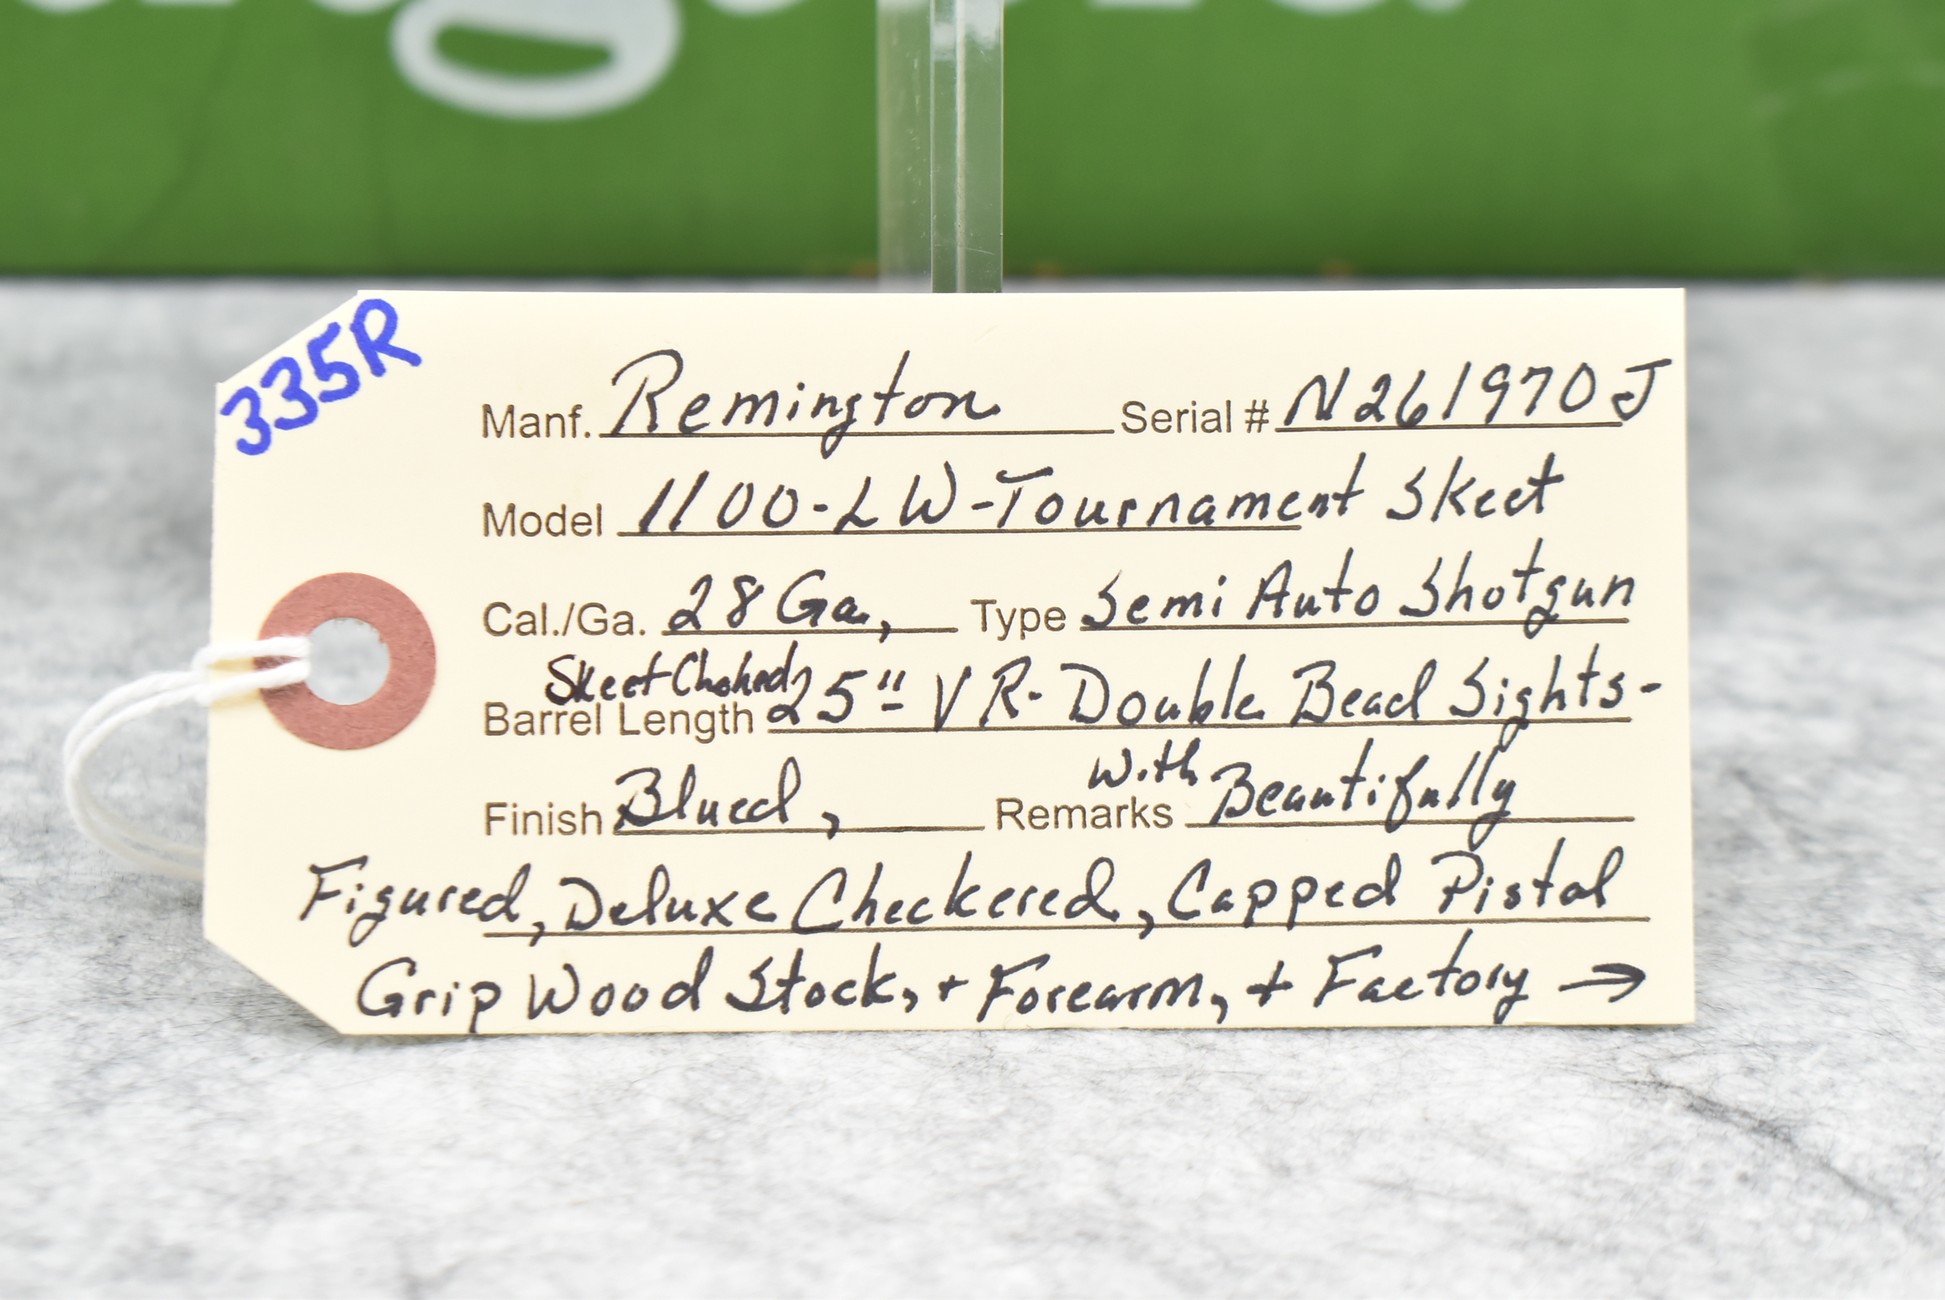 335R
Manf. Remington Serial # N261970J
Model 1100-LW-Tournament Skeet
Cal./Ga. 28 Ga, Type Semi Auto Shotgun
Skeet Choked
Barrel Length 25" VR-Double Bead Sights-
with
Finish Blued, Remarks Beautifully
Figured, Deluxe Checkered, Capped Pistol
Grip Wood Stock, + Forearm, + Factory →